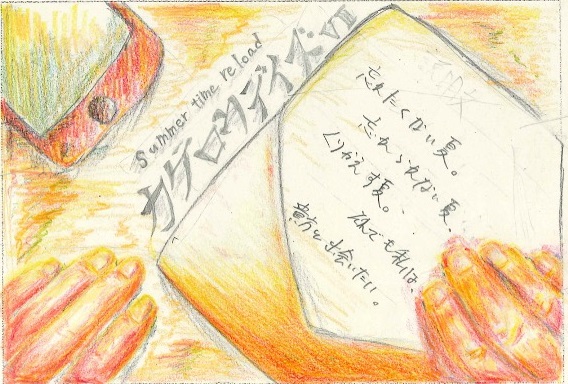 Summer time reload
カゲロウデイズVIII
忘れたくない夏。
忘れられない夏、
くりかえす夏。
それでも私は、
貴方と出会いたい。